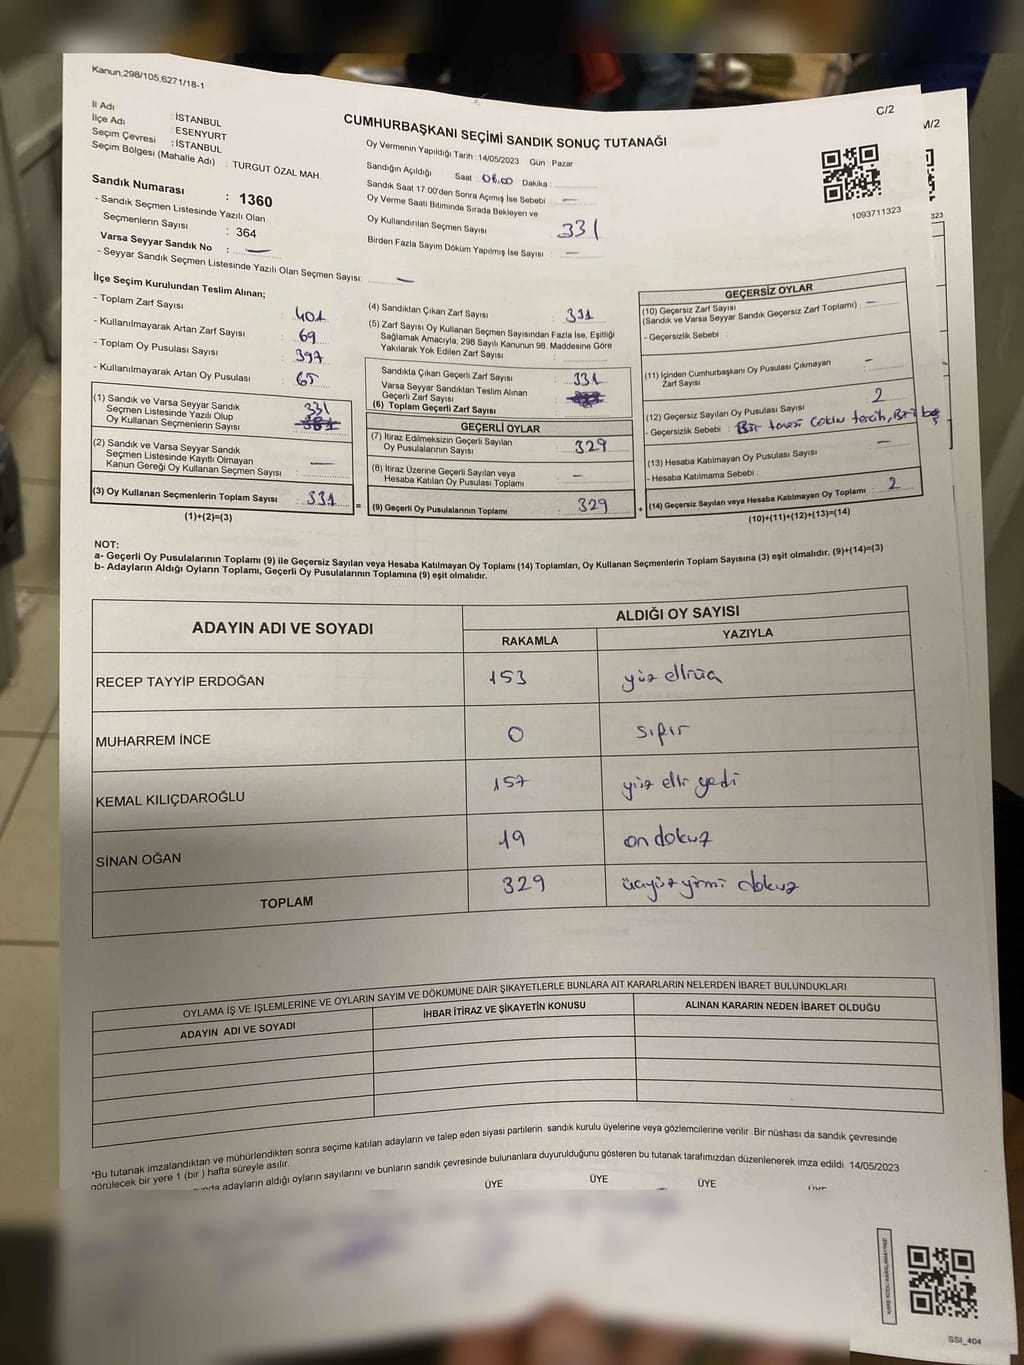 Kanun;298/105;6271/18-1
C/2
M/2
İl Adı : İSTANBUL
İlçe Adı : ESENYURT
Seçim Çevresi : İSTANBUL
Seçim Bölgesi (Mahalle Adı) : TURGUT ÖZAL MAH.
Sandık Numarası : 1360
- Sandık Seçmen Listesinde Yazılı Olan
Seçmenlerin Sayısı : 364
Varsa Seyyar Sandık No : —
- Seyyar Sandık Seçmen Listesinde Yazılı Olan Seçmen Sayısı: —
CUMHURBAŞKANI SEÇİMİ SANDIK SONUÇ TUTANAĞI
Oy Vermenin Yapıldığı Tarih : 14/05/2023 Gün : Pazar
Sandığın Açıldığı Saat : 08.00 Dakika :
Sandık Saat 17:00'den Sonra Açımış İse Sebebi : —
Oy Verme Saati Bitiminde Sırada Bekleyen ve
Oy Kullandırılan Seçmen Sayısı : 331
Birden Fazla Sayım Döküm Yapılmış İse Sayısı : —
1093711323
323
İlçe Seçim Kurulundan Teslim Alınan;
- Toplam Zarf Sayısı : 401
- Kullanılmayarak Artan Zarf Sayısı : 69
- Toplam Oy Pusulası Sayısı : 397
- Kullanılmayarak Artan Oy Pusulası : 65
(1) Sandık ve Varsa Seyyar Sandık
Seçmen Listesinde Yazılı Olup
Oy Kullanan Seçmenlerin Sayısı : 331
(2) Sandık ve Varsa Seyyar Sandık
Seçmen Listesinde Kayıtlı Olmayan
Kanun Gereği Oy Kullanan Seçmen Sayısı : —
(3) Oy Kullanan Seçmenlerin Toplam Sayısı : 331 =
(1)+(2)=(3)
(4) Sandıktan Çıkan Zarf Sayısı : 331
(5) Zarf Sayısı Oy Kullanan Seçmen Sayısından Fazla İse, Eşitliği
Sağlamak Amacıyla, 298 Sayılı Kanunun 98. Maddesine Göre
Yakılarak Yok Edilen Zarf Sayısı :
Sandıkta Çıkan Geçerli Zarf Sayısı : 331
Varsa Seyyar Sandıktan Teslim Alınan
Geçerli Zarf Sayısı :
(6) Toplam Geçerli Zarf Sayısı :
GEÇERLİ OYLAR
(7) İtiraz Edilmeksizin Geçerli Sayılan
Oy Pusulalarının Sayısı : 329
(8) İtiraz Üzerine Geçerli Sayılan veya
Hesaba Katılan Oy Pusulası Toplamı : —
(9) Geçerli Oy Pusulalarının Toplamı : 329 +
GEÇERSİZ OYLAR
(10) Geçersiz Zarf Sayısı
(Sandık ve Varsa Seyyar Sandık Geçersiz Zarf Toplamı) : —
- Geçersizlik Sebebi :
(11) İçinden Cumhurbaşkanı Oy Pusulası Çıkmayan
Zarf Sayısı : —
(12) Geçersiz Sayılan Oy Pusulası Sayısı : 2
- Geçersizlik Sebebi : Bir tanesi çoklu tercih, Biri boş
(13) Hesaba Katılmayan Oy Pusulası Sayısı : —
- Hesaba Katılmama Sebebi :
(14) Geçersiz Sayılan veya Hesaba Katılmayan Oy Toplamı : 2
(10)+(11)+(12)+(13)=(14)
NOT:
a- Geçerli Oy Pusulalarının Toplamı (9) ile Geçersiz Sayılan veya Hesaba Katılmayan Oy Toplamı (14) Toplamları, Oy Kullanan Seçmenlerin Toplam Sayısına (3) eşit olmalıdır. (9)+(14)=(3)
b- Adayların Aldığı Oyların Toplamı, Geçerli Oy Pusulalarının Toplamına (9) eşit olmalıdır.
ADAYIN ADI VE SOYADI
ALDIĞI OY SAYISI
RAKAMLA YAZIYLA
RECEP TAYYİP ERDOĞAN 153 yüz elliüç
MUHARREM İNCE 0 sıfır
KEMAL KILIÇDAROĞLU 157 yüz elli yedi
SİNAN OĞAN 19 on dokuz
TOPLAM 329 üçyüz yirmi dokuz
OYLAMA İŞ VE İŞLEMLERİNE VE OYLARIN SAYIM VE DÖKÜMÜNE DAİR ŞİKAYETLERLE BUNLARA AİT KARARLARIN NELERDEN İBARET BULUNDUKLARI
ADAYIN ADI VE SOYADI İHBAR İTİRAZ VE ŞİKAYETİN KONUSU ALINAN KARARIN NEDEN İBARET OLDUĞU
*Bu tutanak imzalandıktan ve mühürlendikten sonra seçime katılan adayların ve talep eden siyasi partilerin sandık kurulu üyelerine veya gözlemcilerine verilir .Bir nüshası da sandık çevresinde
görülecek bir yere 1 (bir ) hafta süreyle asılır.
adayların aldığı oyların sayılarını ve bunların sandık çevresinde bulunanlara duyurulduğunu gösteren bu tutanak tarafımızdan düzenlenerek imza edildi. 14/05/2023
ÜYE ÜYE ÜYE
KARE KODU KARALAMAYINIZ!
SSI_404